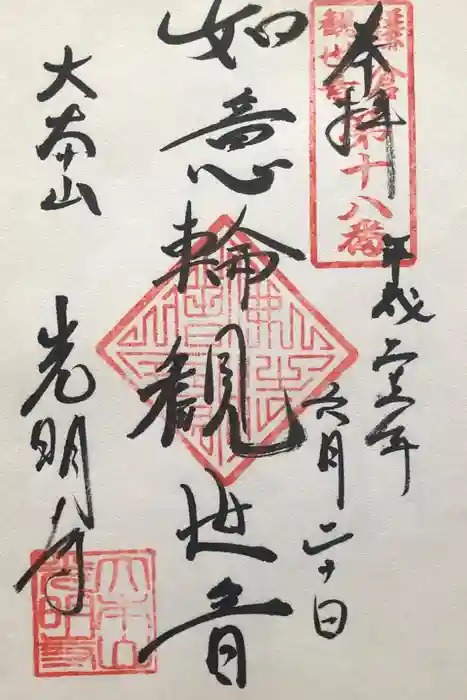 奉拝
鎌倉
観世音
第十八番
平成
六月二十日
如意輪観世音
大本山
光明寺
大本山
光明寺